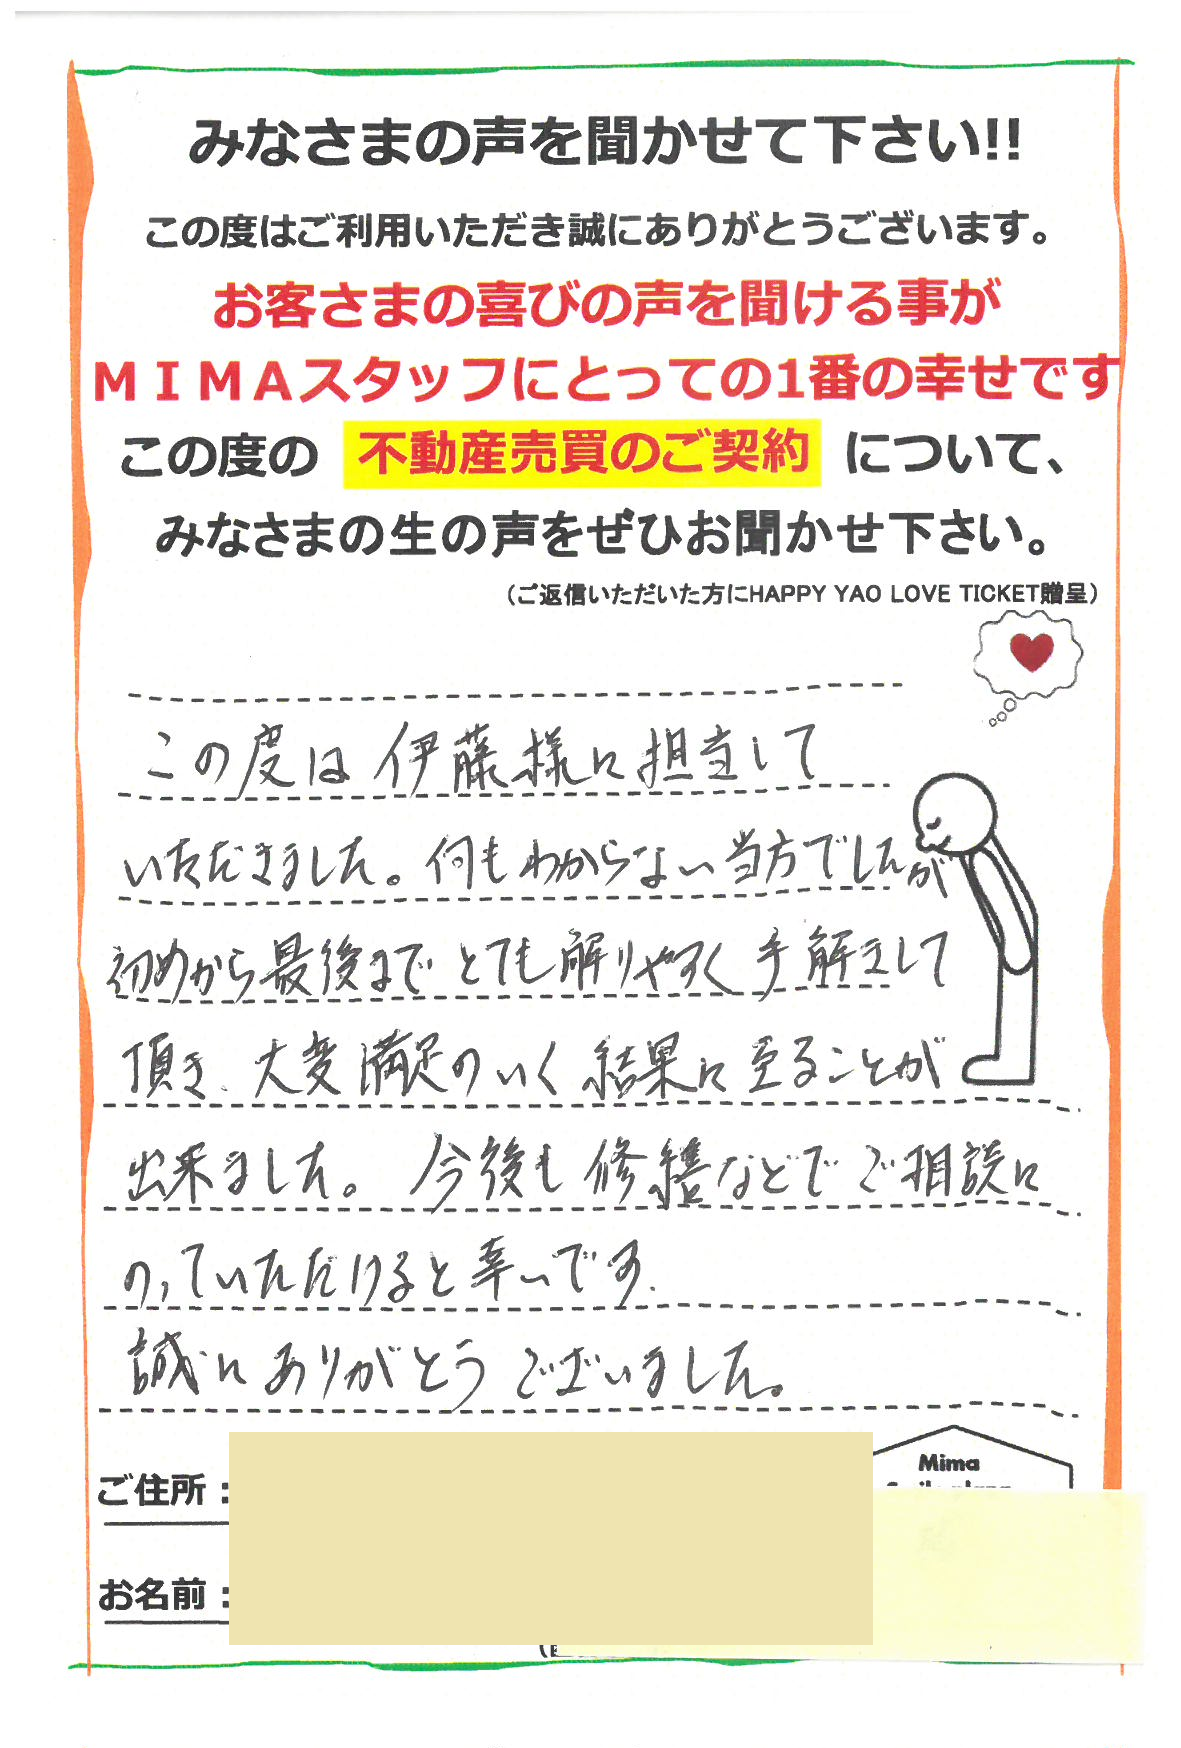 みなさまの声を聞かせて下さい!!
この度はご利用いただき誠にありがとうございます。
お客さまの喜びの声を聞ける事が
ＭＩＭＡスタッフにとっての1番の幸せです
この度の 不動産売買のご契約 について、
みなさまの生の声をぜひお聞かせ下さい。
(ご返信いただいた方にHAPPY YAO LOVE TICKET贈呈)
この度は伊藤様に担当して
いただきました。何もわからない当方でしたが
初めから最後までとても解りやすく手解きして
頂き、大変満足のいく結果に至ることが
出来ました。今後も修繕などでご相談に
のっていただけると幸いです.
誠にありがとうございました。
Mima
ご住所：
お名前：